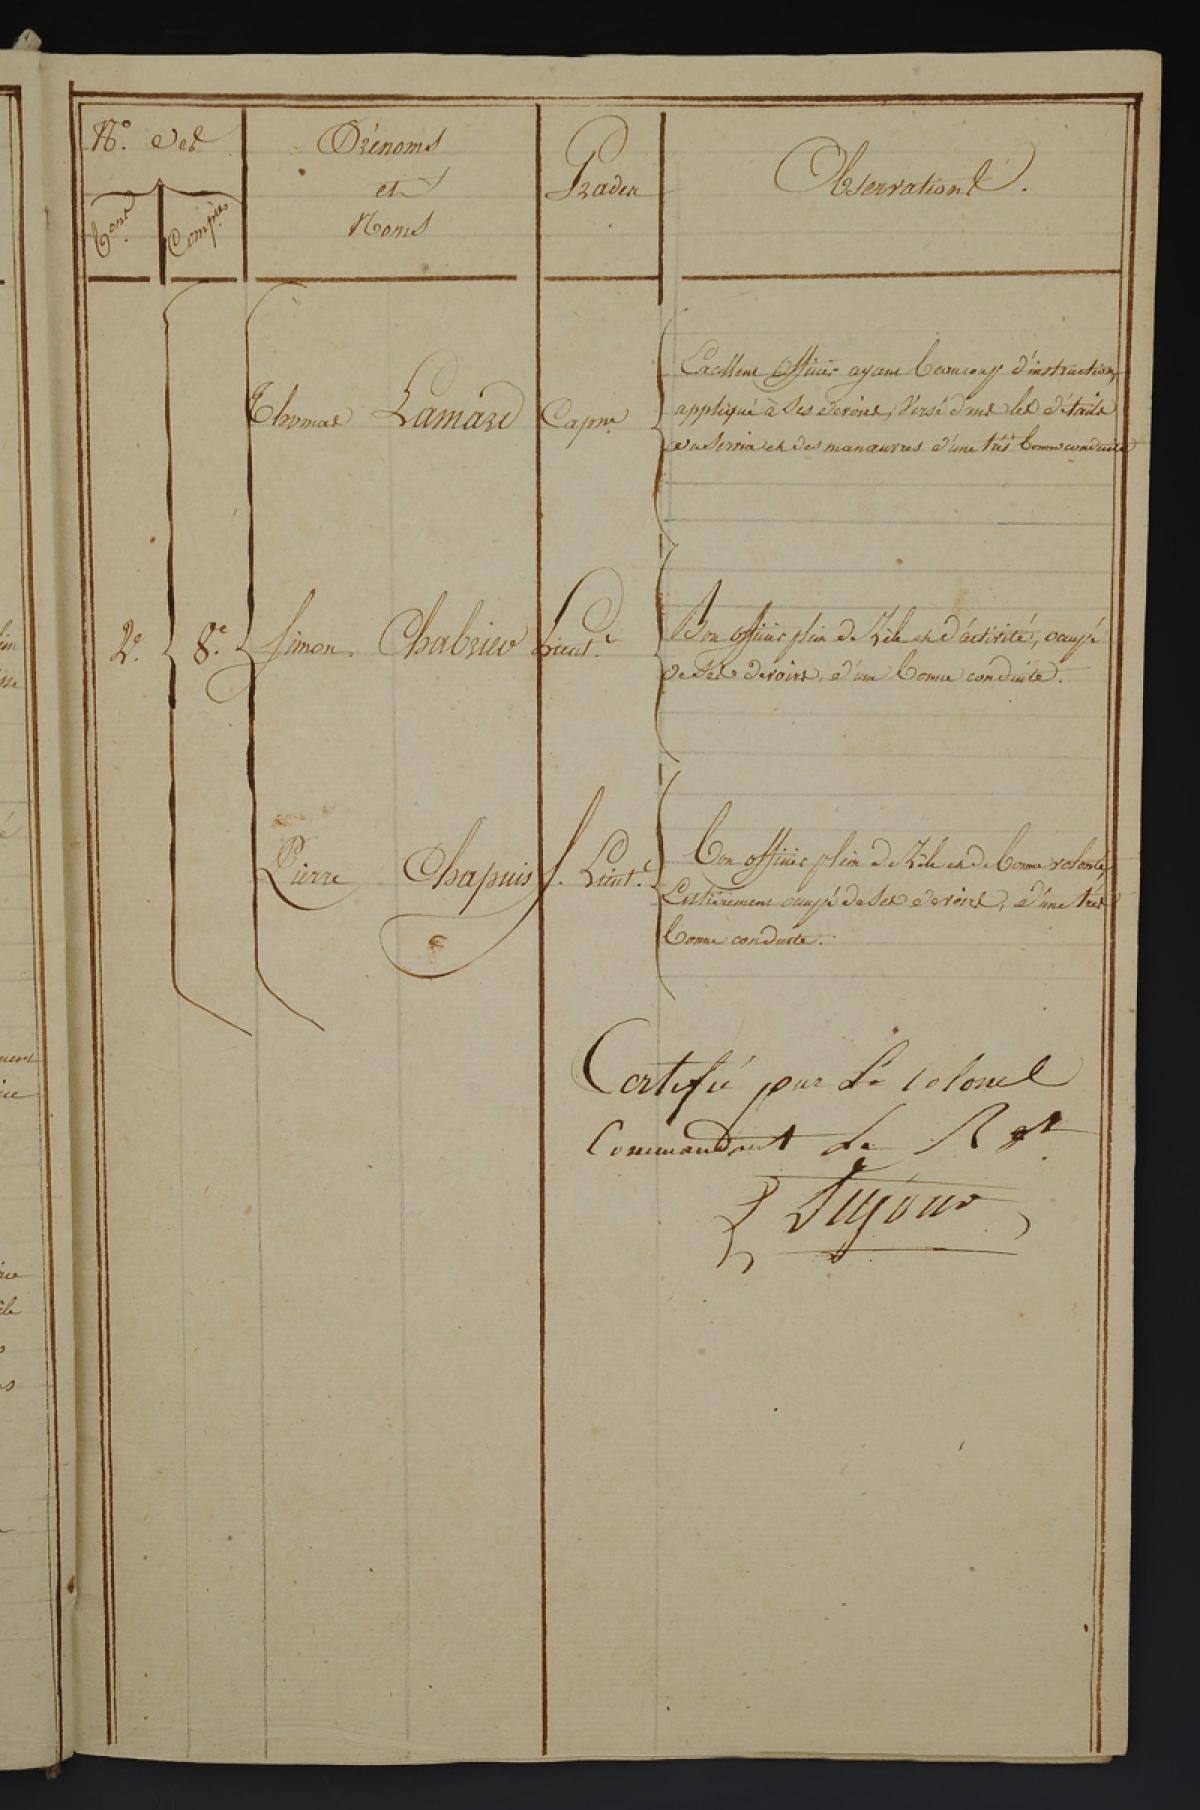 Nos. des
Prénoms
et
Noms
Grades
Observations.
Bons
Compies
Thomas Lamare Capne
Excellent officier ayant beaucoup d'instruction,
appliqué à ses devoirs, versé dans les détails
du service et des manœuvres d'une très bonne conduite
2e. 8e. Simon Chabrier Lieutt.
Bon officier plein de Zèle et d'activité, occupé
de ses devoirs, d'une bonne conduite.
Pierre Chapuis S. Lieutt.
Bon officier plein de Zèle et de bonne volonté,
Entièrement occupé de ses devoirs, d'une très
bonne conduite.
Certifié par le colonel
Commandant le Rgt.